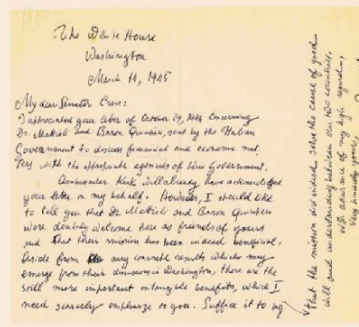 The White House
Washington
March 14, 1945
My dear Senator Croce:
I appreciated your letter of October 29, 1944 concerning
Dr. Mattioli and Baron Quintieri, sent by the Italian
Government to discuss financial and economic mat-
ters with the appropriate agencies of this Government.
Ambassador Kirk will already have acknowledged
your letter on my behalf. However, I should like
to tell you that Dr. Mattioli and Baron Quintieri
were doubly welcome here as friends of yours
and that their mission has been indeed beneficial.
Aside from any concrete results which may
emerge from their discussions in Washington, there are the
still more important intangible benefits, which I
need scarcely emphasize to you. Suffice it to say
that the mission did indeed serve the cause of good
will and understanding between our two countries.
With assurance of my high regard,
Very sincerely yours,